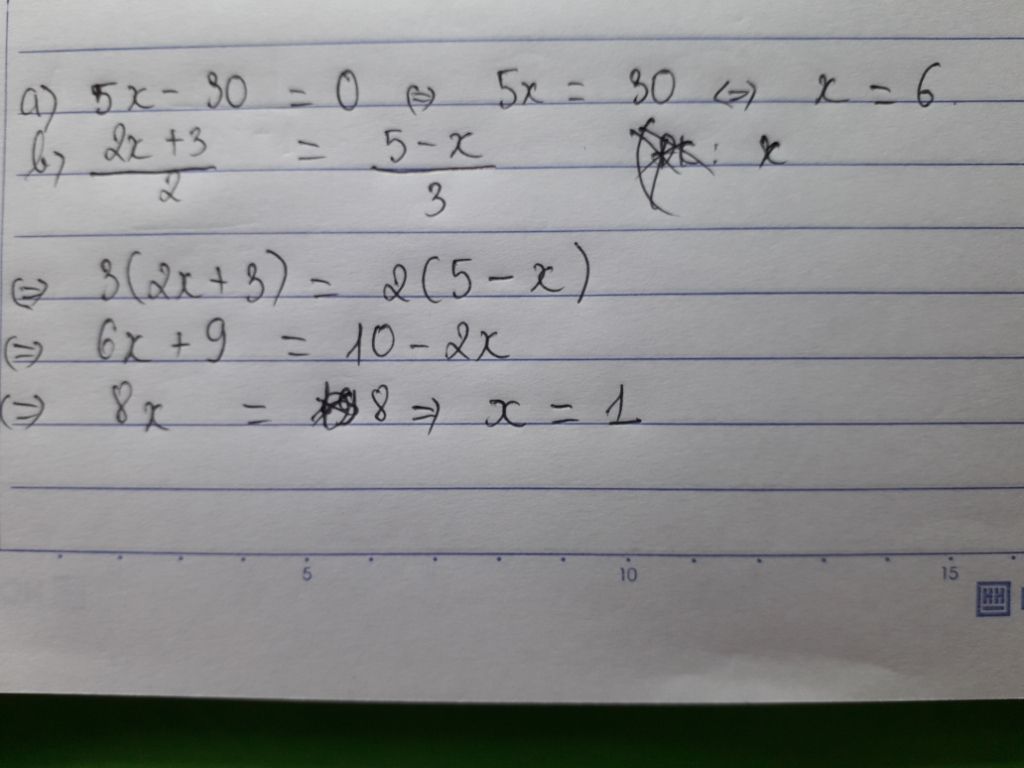 a) 5x - 30 = 0 ⇔ 5x = 30 ⇔ x = 6
b) (2x + 3)/2 = (5 - x)/3 x
⇔ 3(2x + 3) = 2(5 - x)
⇔ 6x + 9 = 10 - 2x
⇔ 8x = 8 ⇒ x = 1
5 10 15
HH